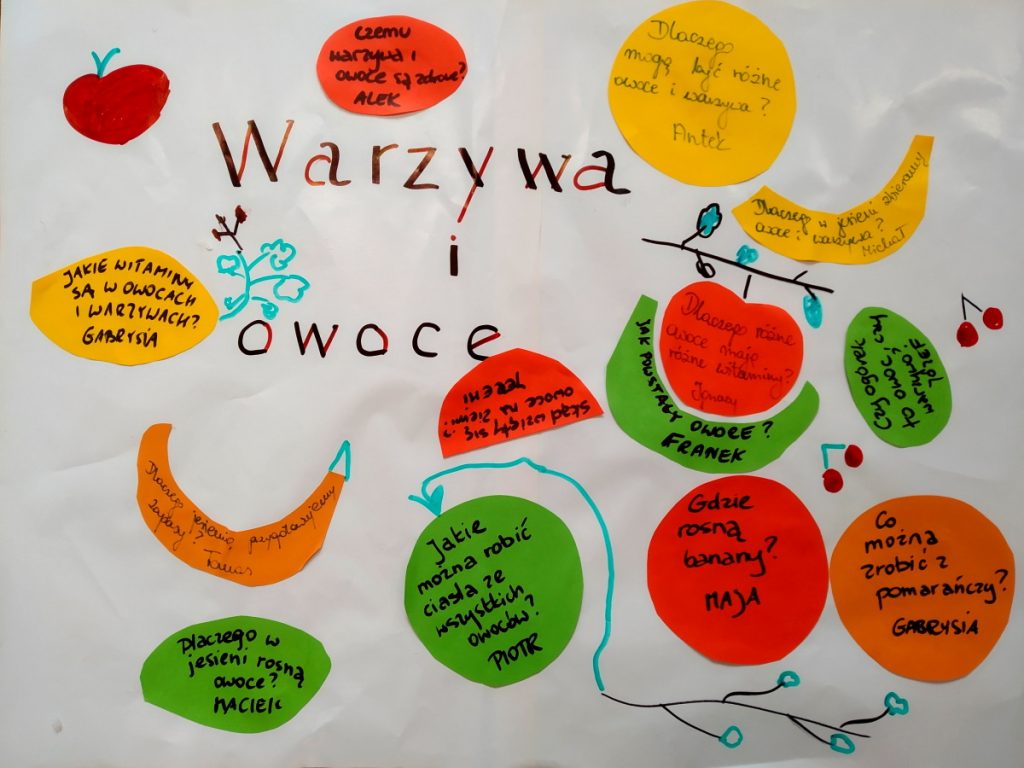 Czemu
warzywa i
owoce są zdrowe?
ALEK
Dlaczego
mogą być różne
owoce i warzywa?
Antek
Warzywa
i
owoce
Dlaczego w jesieni zbieramy
owoce i warzywa?
Michał
JAKIE WITAMINY
SĄ W OWOCACH
I WARZYWACH?
GABRYSIA
Dlaczego różne
owoce mają
różne witaminy?
Ignacy
JAK POWSTAŁY OWOCE?
FRANEK
Czy ogórek
to owoc czy
warzywo?
JÓZEF
Skąd wzięły się
owoce na ziemi?
Dlaczego jesienią przygotowujemy
zapasy?
Tomas
Jakie
można robić
ciasta ze
wszystkich
owoców?
PIOTR
Gdzie
rosną
banany?
MAJA
Co
można
zrobić z
pomarańczy?
GABRYSIA
Dlaczego w
jesieni rosną
owoce?
MACIEK